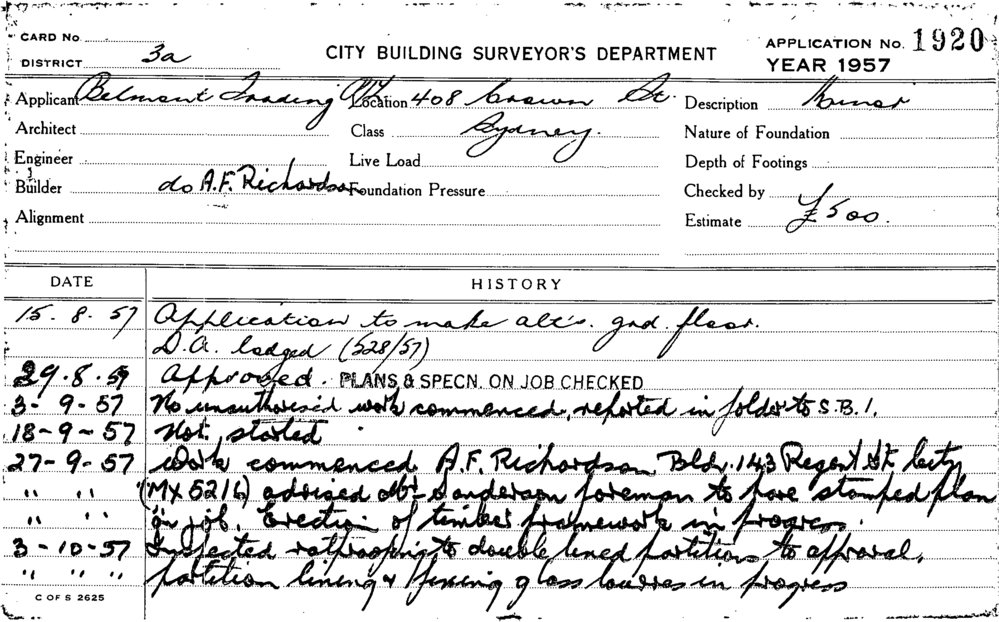 CARD No.
DISTRICT 3a
CITY BUILDING SURVEYOR'S DEPARTMENT
APPLICATION No. 1920
YEAR 1957
Applicant Belmont Trading Co Location 408 Crown St. Description Minor
Architect Class Sydney. Nature of Foundation
Engineer Live Load Depth of Footings
Builder do A.F. Richardson Foundation Pressure Checked by
Alignment Estimate £500.
DATE HISTORY
15. 8. 57 Application to make alt's. gnd. floor.
D.A. lodged (528/57)
29. 8. 57 Approved. PLANS & SPECN. ON JOB CHECKED
3- 9-57 No unauthorised work commenced, reported in folder to S.B.I.
18-9-57 Not started
27-9-57 Work commenced A.F. Richardson Bldr. 143 Regent St. City
" " (MX 5216) advised Mr Sanderson foreman to have stamped plan
" " on job. Erection of timber framework in progress.
3-10-57 Inspected ratproofing to double lined partitions to approval,
" " " partition lining & fixing glass louvres in progress
C OF S 2625